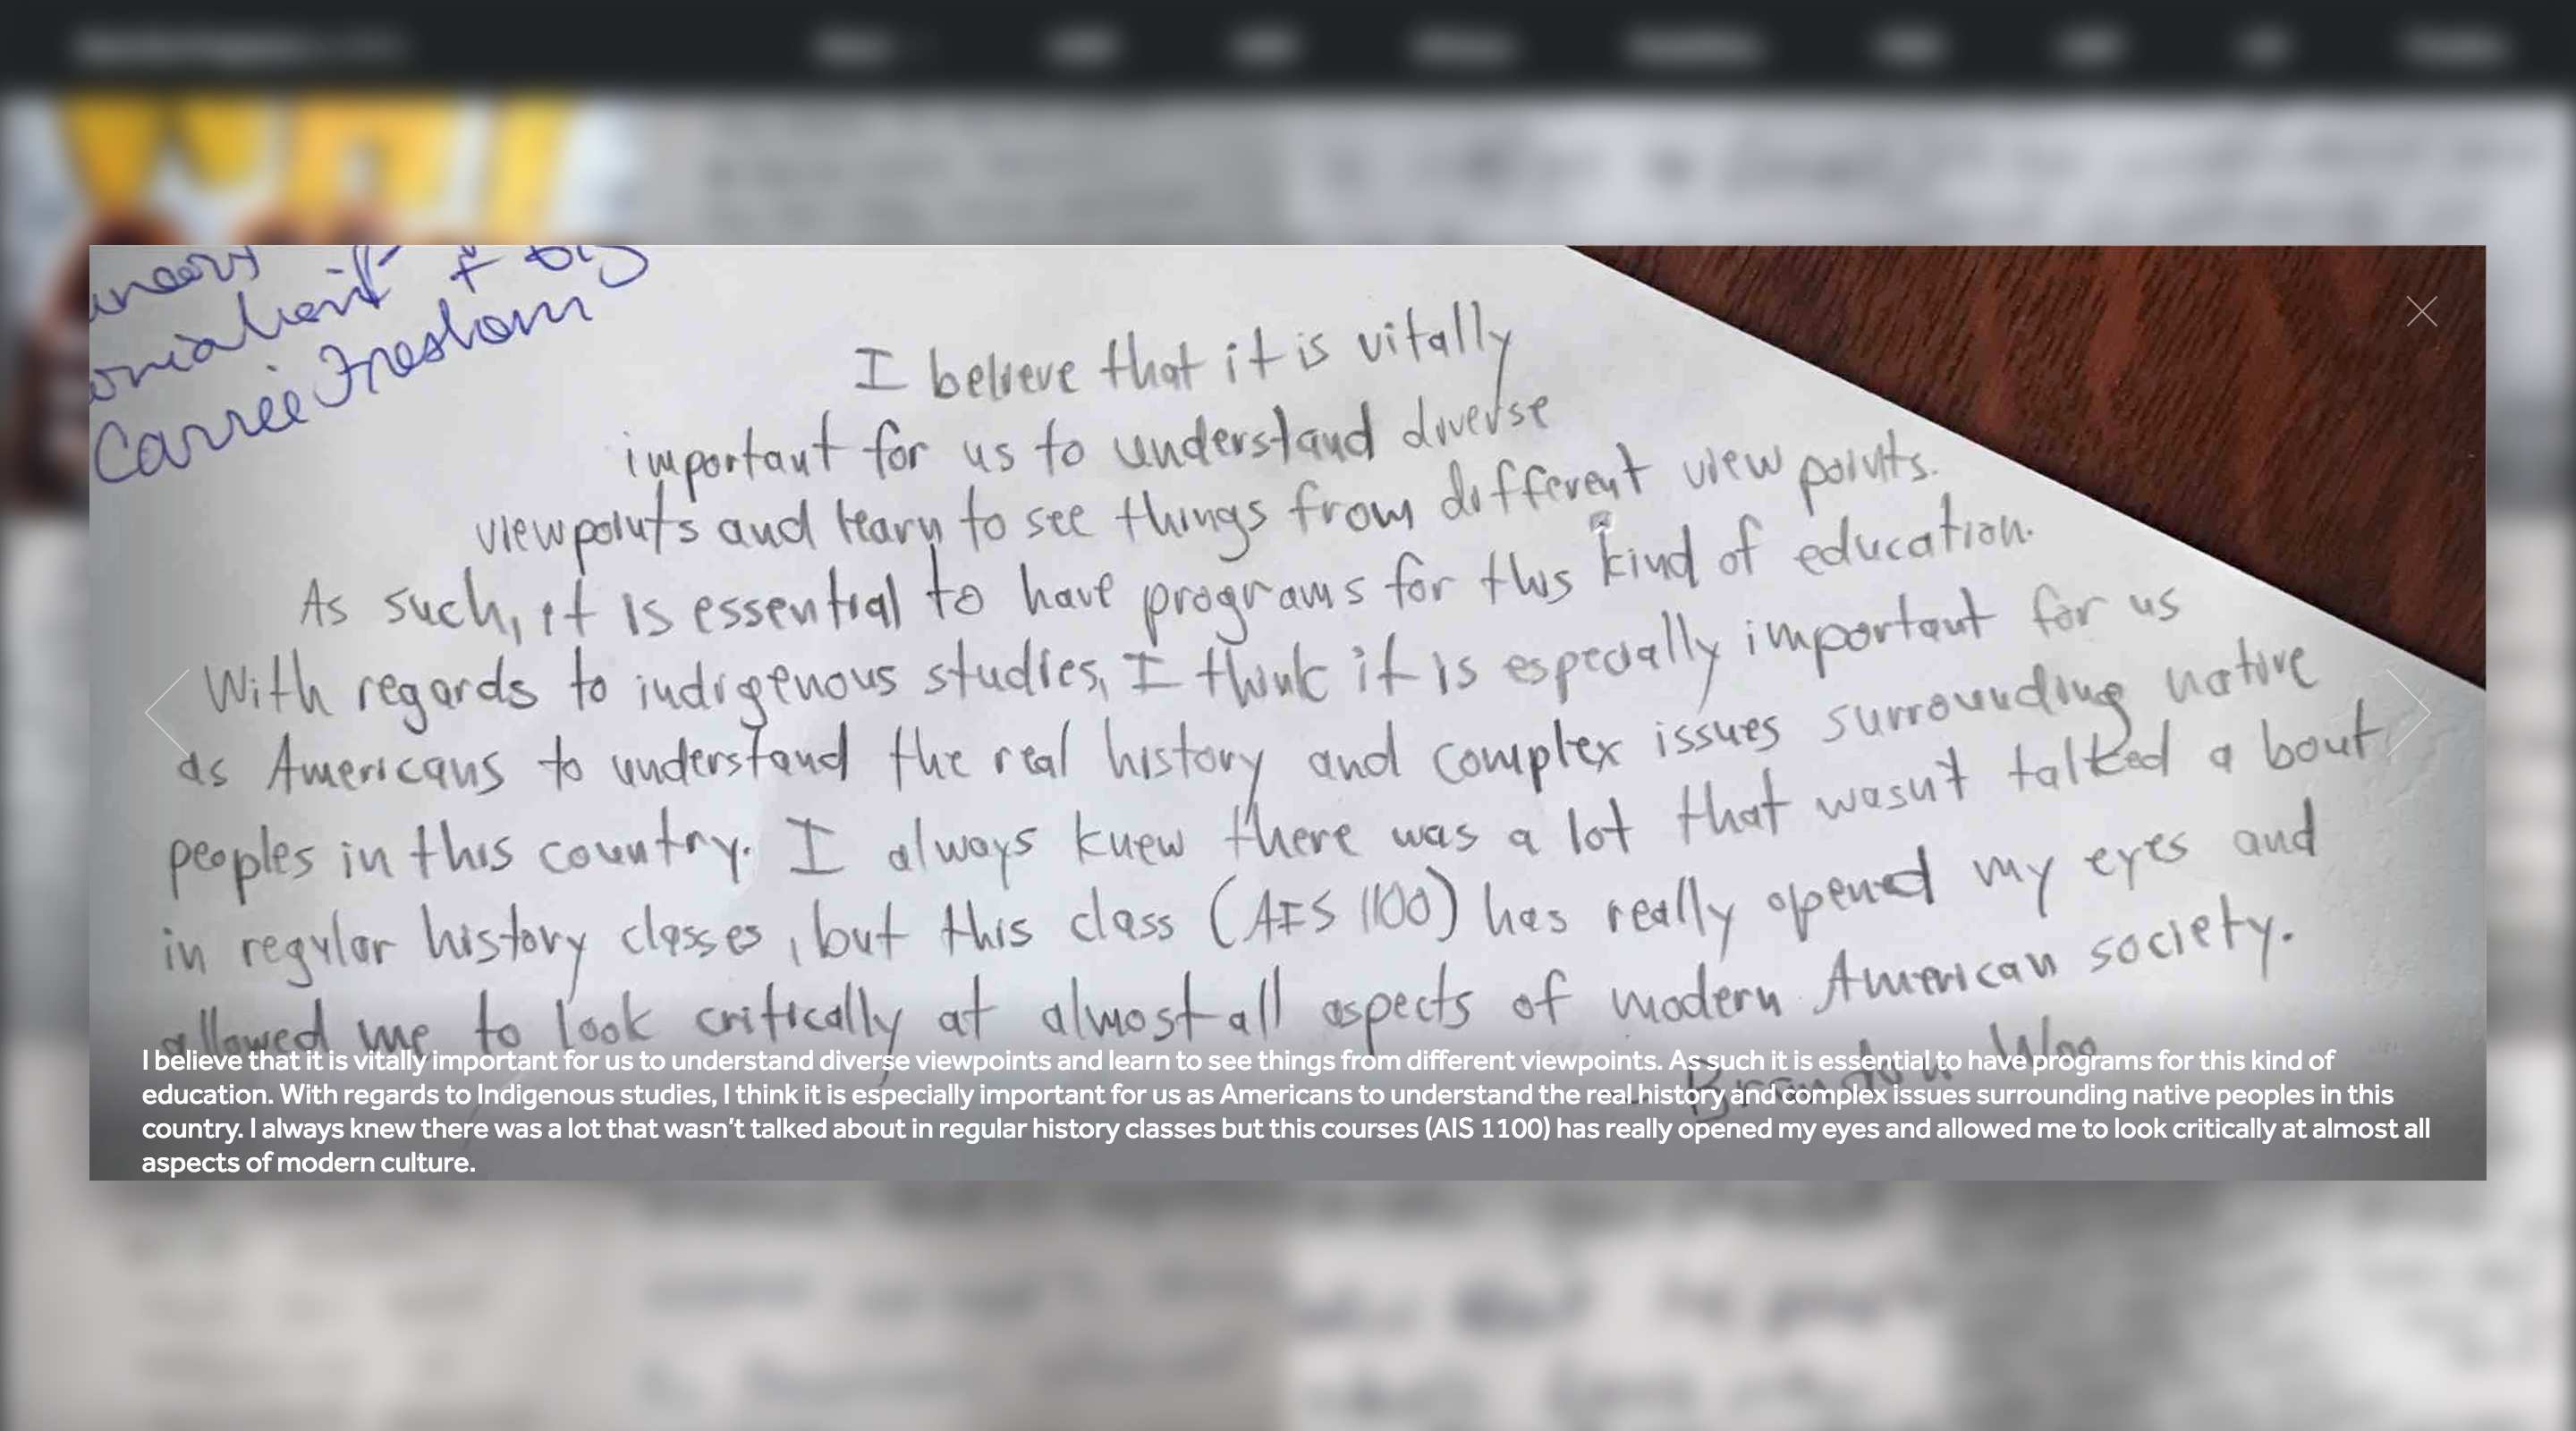 Carrie Freshom
I believe that it is vitally
important for us to understand diverse
viewpoints and learn to see things from different viewpoints.
As such, it is essential to have programs for this kind of education.
With regards to indigenous studies, I think it is especially important for us
as Americans to understand the real history and complex issues surrounding native
peoples in this country. I always knew there was a lot that wasn't talked about
in regular history classes, but this class (AIS 1100) has really opened my eyes and
allowed me to look critically at almost all aspects of modern American society.
- Brandon Woo
I believe that it is vitally important for us to understand diverse viewpoints and learn to see things from different viewpoints. As such it is essential to have programs for this kind of
education. With regards to Indigenous studies, I think it is especially important for us as Americans to understand the real history and complex issues surrounding native peoples in this
country. I always knew there was a lot that wasn't talked about in regular history classes but this courses (AIS 1100) has really opened my eyes and allowed me to look critically at almost all
aspects of modern culture.